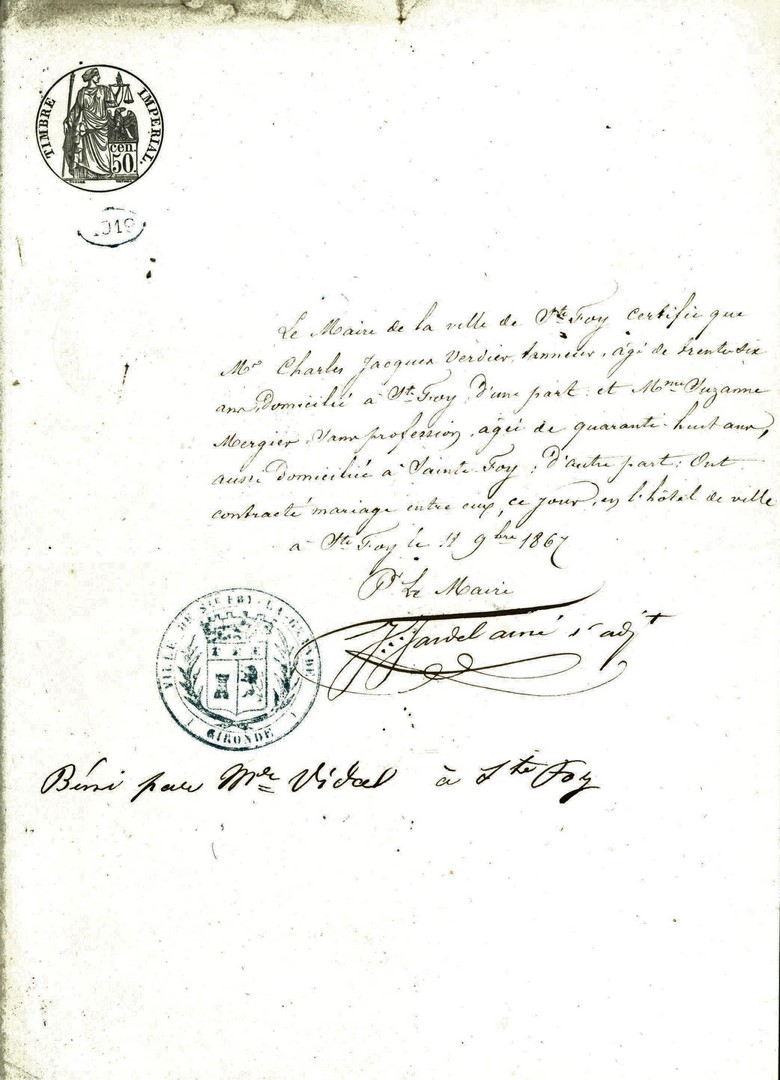 TIMBRE IMPERIAL.
cen.
50.
Le Maire de la ville de Ste Foy certifie que
Mr Charles Jacques Verdier, tanneur, âgé de trente-six
ans, domicilié à Ste Foy, d'une part; et Mme Suzanne
Mergier, sans profession, âgée de quarante-huit ans,
aussi domiciliée à Sainte Foy, d'autre part; Ont
contracté mariage entre eux, ce jour, en l'hôtel de ville
à Ste Foy le 11 9bre 1867
Pr Le Maire
Jardel ainé 1r adjt
VILLE DE STE FOY-LA-GRANDE
GIRONDE
Béni par Mr Vidal à Ste Foy